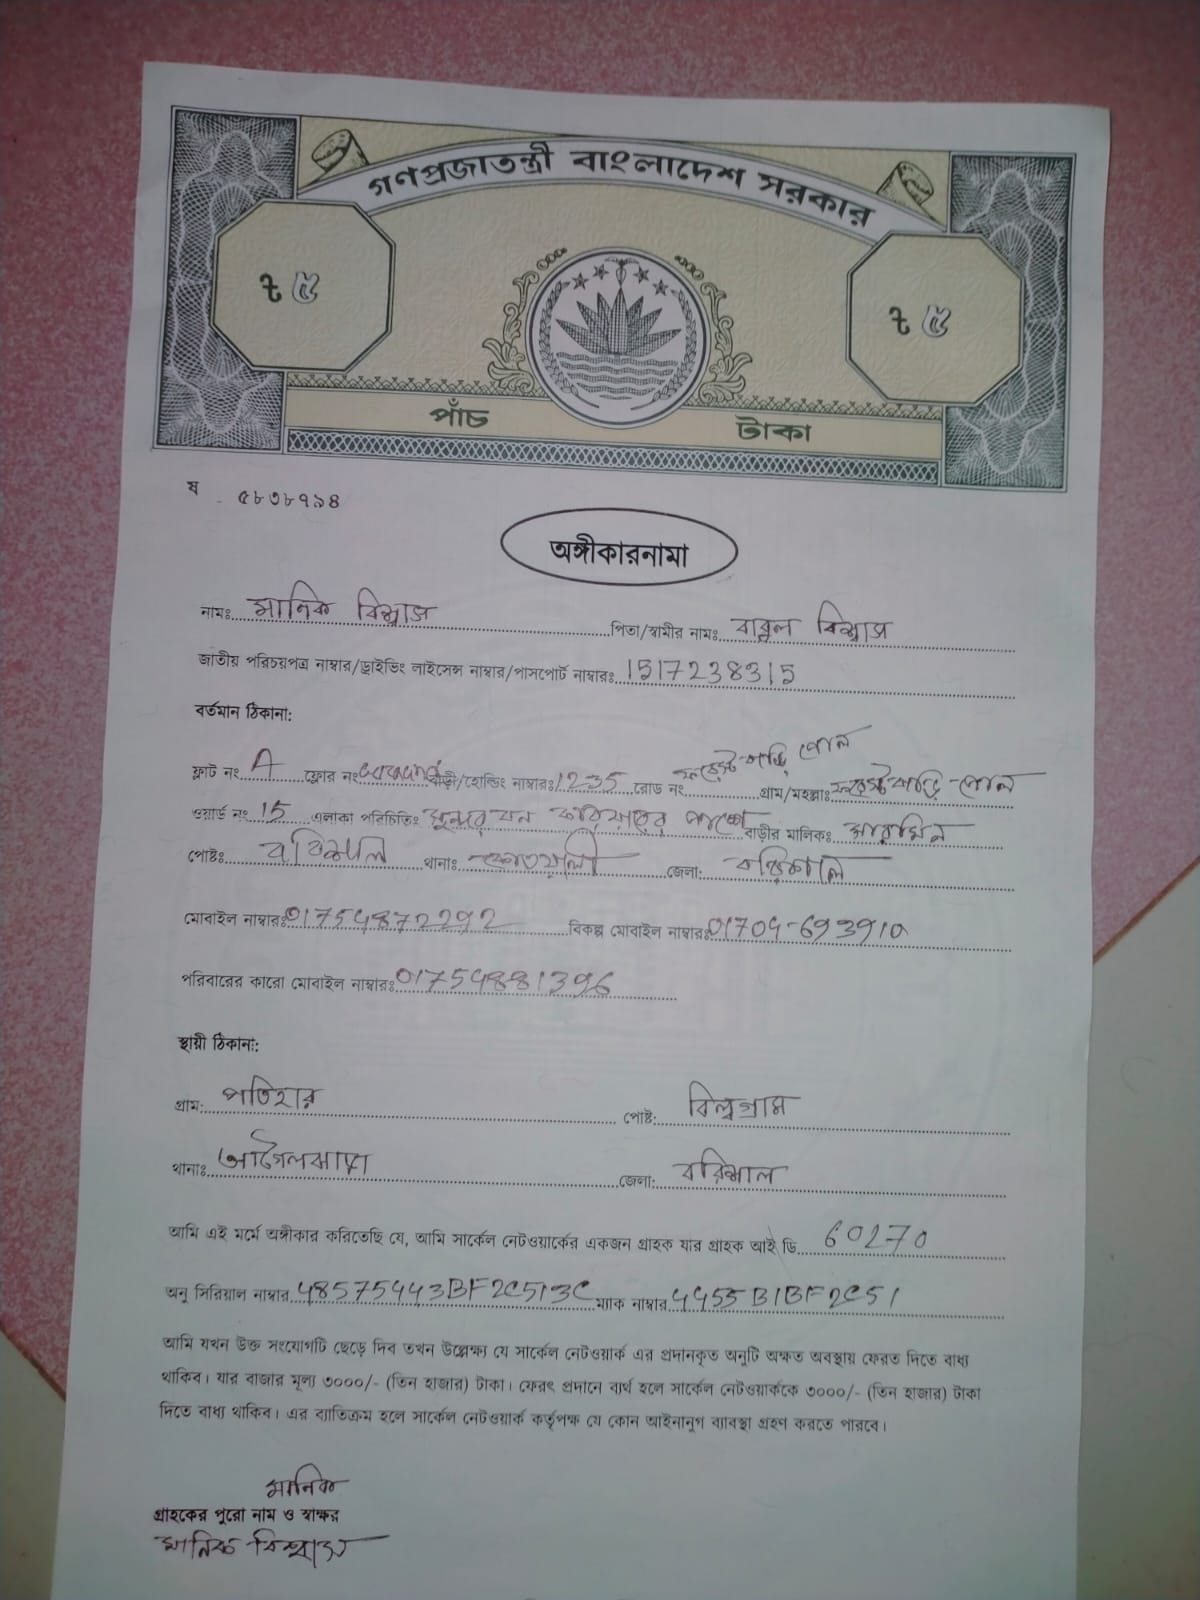 গণপ্রজাতন্ত্রী বাংলাদেশ সরকার
৳ ৫ ৳ ৫
পাঁচ টাকা
ষ ৫৮৩৮৭৯৪
অঙ্গীকারনামা
নামঃ মানিক বিশ্বাস পিতা/স্বামীর নামঃ বাবুল বিশ্বাস
জাতীয় পরিচয়পত্র নাম্বার/ড্রাইভিং লাইসেন্স নাম্বার/পাসপোর্ট নাম্বারঃ 1517238315
বর্তমান ঠিকানা:
ফ্লাট নং A ফ্লোর নং বাড়ী/হোল্ডিং নাম্বারঃ 1235 রোড নং ফরেস্ট বাড়ি পোল গ্রাম/মহল্লাঃ ফরেস্ট বাড়ি পোল
ওয়ার্ড নং 15 এলাকা পরিচিতিঃ সুন্দর বন পাশে বাড়ীর মালিকঃ
পোষ্টঃ বরিশাল থানাঃ কোতয়ালী জেলা: বরিশাল
মোবাইল নাম্বারঃ 01754872292 বিকল্প মোবাইল নাম্বারঃ
পরিবারের কারো মোবাইল নাম্বারঃ 01754881396
স্থায়ী ঠিকানা:
গ্রাম: পতিহার পোষ্ট: বিল্বগ্রাম
থানাঃ আগৈলঝাড়া জেলা: বরিশাল
আমি এই মর্মে অঙ্গীকার করিতেছি যে, আমি সার্কেল নেটওয়ার্কের একজন গ্রাহক যার গ্রাহক আই ডি 60270
অনু সিরিয়াল নাম্বার 48575443BF2C513C ম্যাক নাম্বার 4455B1BF2C51
আমি যখন উক্ত সংযোগটি ছেড়ে দিব তখন উল্লেক্ষ্য যে সার্কেল নেটওয়ার্ক এর প্রদানকৃত অনুটি অক্ষত অবস্থায় ফেরত দিতে বাধ্য
থাকিব। যার বাজার মূল্য ৩০০০/- (তিন হাজার) টাকা। ফেরৎ প্রদানে ব্যর্থ হলে সার্কেল নেটওয়ার্ককে ৩০০০/- (তিন হাজার) টাকা
দিতে বাধ্য থাকিব। এর ব্যাতিক্রম হলে সার্কেল নেটওয়ার্ক কর্তৃপক্ষ যে কোন আইনানুগ ব্যাবস্থা গ্রহণ করতে পারবে।
মানিক
গ্রাহকের পুরো নাম ও স্বাক্ষর
মানিক বিশ্বাস